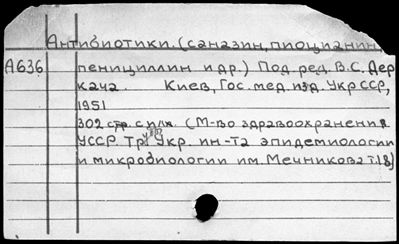 Антибиотики. (саназин, пиоцианин,
А636 пенициллин и др.) Под ред. В.С. Дер
кача. Киев, Гос. мед. изд. УкрССР,
1951
302 стр. с илл. (М-во здравоохранения
УССР. Тр. Укр. ин-та эпидемиологии
и микробиологии им. Мечникова т.18)